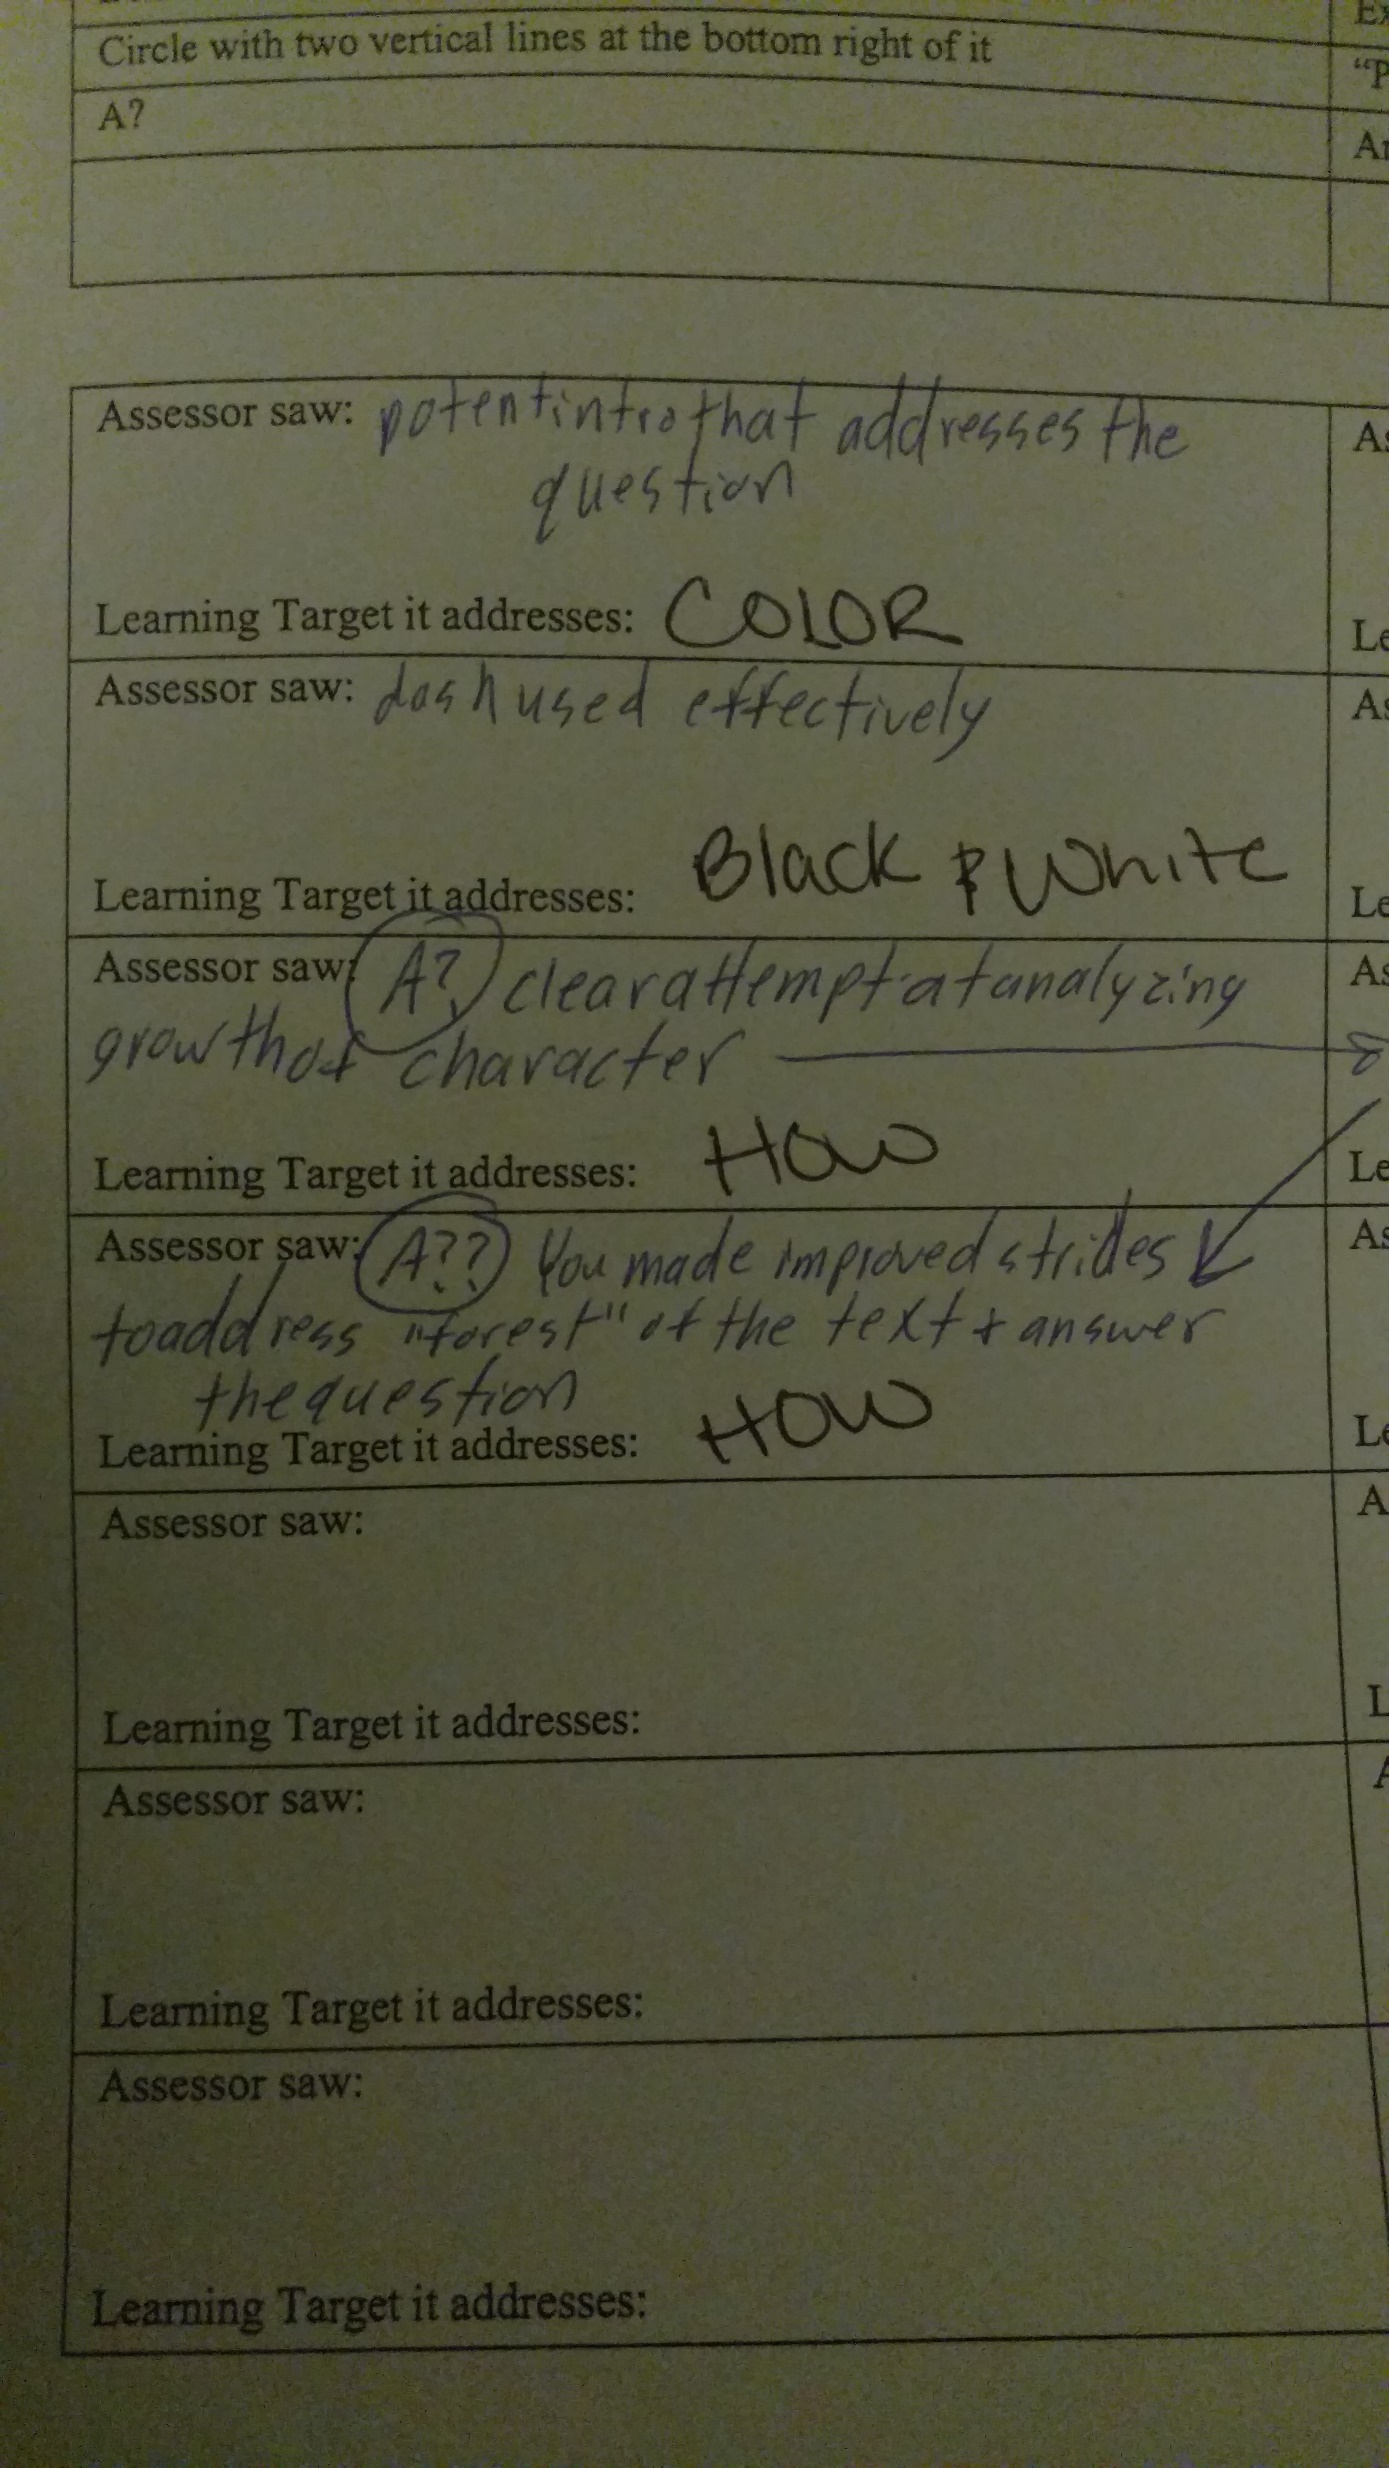 Ex
Circle with two vertical lines at the bottom right of it
"P
A?
Ar
Assessor saw: potent intro that addresses the
question
As
Learning Target it addresses: COLOR
Le
Assessor saw: dash used effectively
As
Learning Target it addresses: Black & White
Le
Assessor saw: A? clear attempt at analyzing
growth of character
As
Learning Target it addresses: HOW
Le
Assessor saw: A?? You made improved strides
to address "forest" of the text + answer
the question
As
Learning Target it addresses: HOW
Le
Assessor saw:
A
Learning Target it addresses:
L
Assessor saw:
A
Learning Target it addresses:
Assessor saw:
Learning Target it addresses: